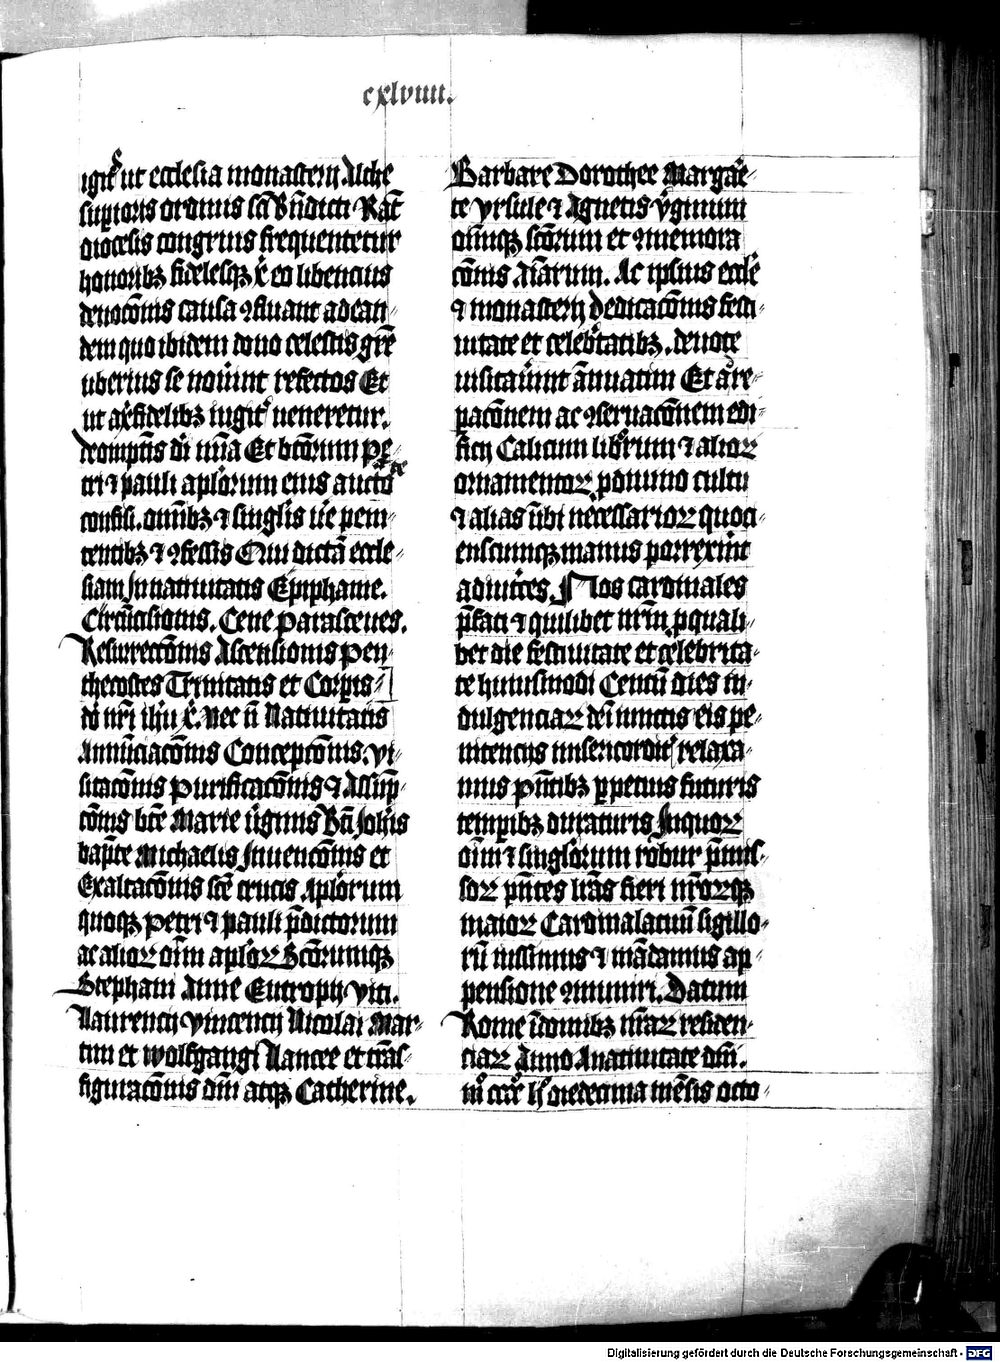 cxlviiii.
igit᷑ ut ecclesia monasterij Alche
suꝑioris ordinis sc̄i Bn̄dicti Rat̄
diocesis congruis frequentetur
honoribꝫ fidelesqꝫ x̄ eo libencius
deuoc̄onis causa ꝯfluant ad ean-
dem quo ibidem dono celestis grē
uberius se nou̾int refectos Et
ut a xp̄ifidelibꝫ iugit᷑ ueneretur.
de omp̄tis dī mīa Et bt̄orum pe-
tri ⁊ pauli apl̄orum eius aucto᷑te
confisi. om̄ibꝫ ⁊ singl̄is u̾e peni-
tentibꝫ ⁊ ꝯfessis Qui dictā eccle-
siam In natiuitatis Epiphanie.
Circūcisionis. Cene parasceues.
Resurrecc̄onis Ascensionis pen-
thecostes Trinitatis et Corꝑis
dn̄i nr̄i ih̄u x̄. Nec n̄ Natiuitatis
Annūciac̄onis Concepc̄onis. vi-
sitac̄onis purificac̄onis ⁊ Assūp-
c̄onis bt̄e Marie u̾ginis Bt̄i Joh̄is
bap̄te Michaelis Inuenc̄onis et
Exaltac̄onis sc̄e crucis Apl̄orum
quoqꝫ petri ⁊ pauli p̄dictorum
ac alioꝝ om̄i apl̄oꝝ Sc̄orumqꝫ
Stephani Anne Eutropij viti.
Laurencij vincencij Nicolai Mar-
tini et wolfgangi Lancee et trās-
figurac̄onis dn̄i atqꝫ Catherine.
Barbare Dorothee Margar̄e-
te vrsule ⁊ Agnetis v̾ginum
om̄iumqꝫ sc̄orum et ꝯmemora
c̄onis ai̅arum. Ac ipsius eccl̄e
⁊ monasterij dedicac̄onis festi-
uitate et celeb̾tatibꝫ. deuote
uisitau̾int ānuatim Et ad re-
pac̄onem ac ꝯseruac̄onem edi-
ficij Calicum lib̾rum ⁊ alioꝝ
ornamentoꝝ ꝓ diuino cultu
⁊ alias ūbi necessarioꝝ quoci-
enscunqꝫ manus porrexint
adiut̾ces. Nos cardinales
p̄fati ⁊ quilibet nr̄m ꝓ quali-
bet die festiuitate et celebrita-
te huiusmodi Centū dies in-
dulgenciaꝝ de iniunctis eis pe-
nitencijs misericordit᷑ relaxa-
mus p̄ntibꝫ ꝑpetuis futuris
temporibꝫ duraturis In quoꝝ
om̄i ⁊ singl̄orum robur p̄mis-
soꝝ p̄ntes lr̄as fieri nr̄orqꝫ
maioꝝ Cardinalatuū sigillo-
rū iussimus ⁊ mādamus ap-
pensione ꝯmuniri. Datum
Rome ī domibꝫ nr̄aꝝ residen-
ciaꝝ Anno A natiuitate dn̄i.
die decima mēsis octo-
Digitalisierung gefördert durch die Deutsche Forschungsgemeinschaft - DFG